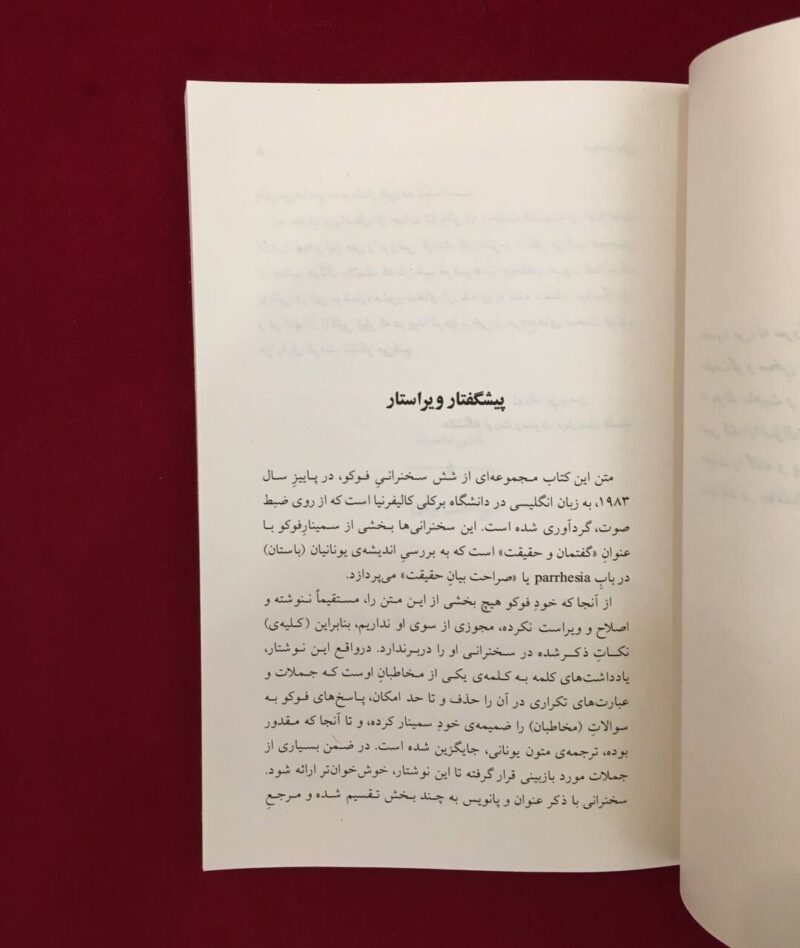 پیشگفتار ویراستار
متن این کتاب مجموعه‌ای از شش سخنرانیِ فوکو، در پاییزِ سال
۱۹۸۳، به زبان انگلیسی در دانشگاه برکلی کالیفرنیا است که از روی ضبط
صوت، گردآوری شده است. این سخنرانی‌ها بخشی از سمینارِ فوکو با
عنوانِ «گفتمان و حقیقت» است که به بررسیِ اندیشه‌ی یونانیان (باستان)
در بابِ parrhesia یا «صراحت بیانِ حقیقت» می‌پردازد.
از آنجا که خودِ فوکو هیچ بخشی از این متن را، مستقیماً ننوشته و
اصلاح و ویراست نکرده، مجوزی از سوی او نداریم، بنابراین (کلیه‌ی)
نکاتِ ذکر شده در سخنرانی او را دربرندارد. درواقع این نوشتار،
یادداشت‌های کلمه به کلمه‌ی یکی از مخاطبانِ اوست که جملات و
عبارت‌های تکراری در آن را حذف و تا حد امکان، پاسخ‌های فوکو به
سوالاتِ (مخاطبان) را ضمیمه‌ی خودِ سمینار کرده، و تا آنجا که مقدور
بوده، ترجمه‌ی متون یونانی، جایگزین شده است. در ضمن بسیاری از
جملات مورد بازبینی قرار گرفته تا این نوشتار، خوش‌خوان‌تر ارائه شود.
سخنرانی با ذکر عنوان و پانویس به چند بخش تقسیم شده و مرجعِ